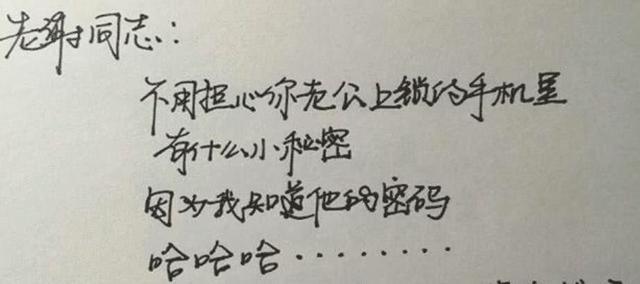 老谢同志：
不用担心你老公上锁的手机里
有什么小秘密
因为我知道他的密码
哈哈哈········